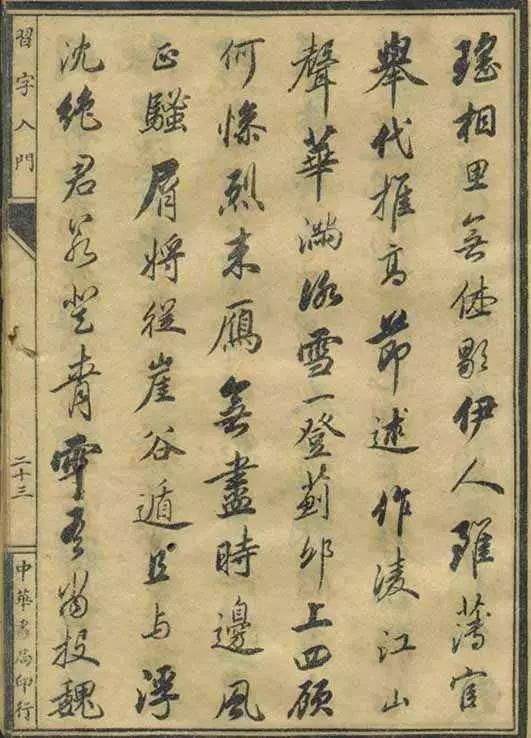 瑤相思無休歇伊人雖薄宦
舉代推高節述作凌江山
聲華滿冰雪一登薊邱上四顧
何慘烈來鴈無盡時邊風
正騷屑將從崖谷遁且与浮
沈絕君若登青雲吾當投魏
習字入門
二十三
中華書局印行